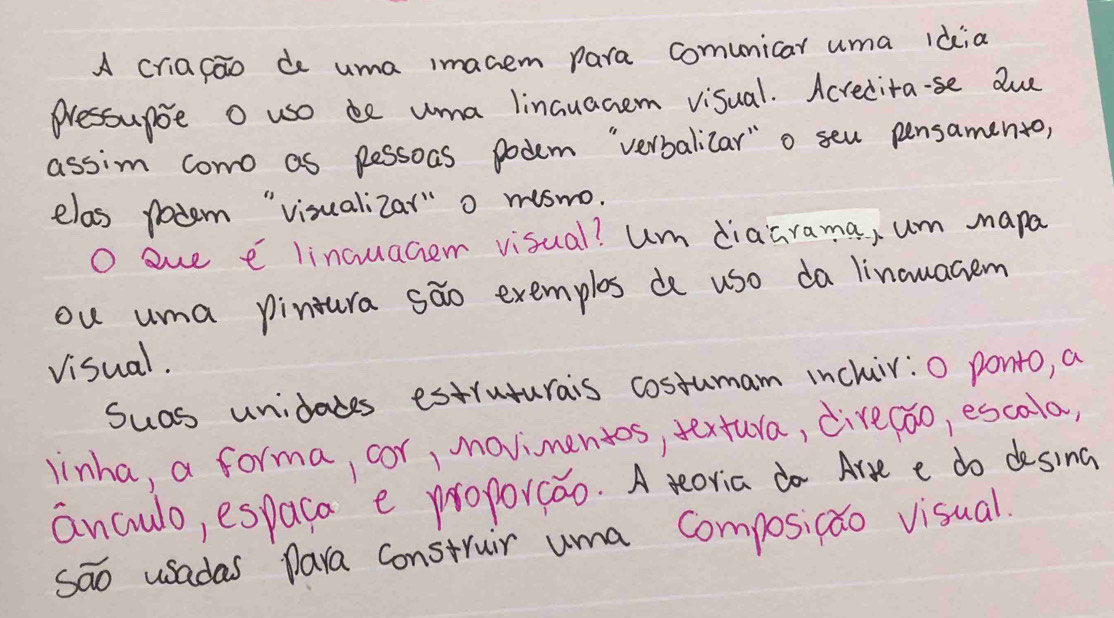 A criação de uma imagem para comunicar uma ideia
pressupõe o uso de uma linguagem visual. Acredita-se que
assim como as pessoas podem "verbalizar" o seu pensamento,
elas podem "visualizar" o mesmo.
O que é linguagem visual? Um diagrama, um mapa
ou uma pintura são exemplos de uso da linguagem
visual.
Suas unidades estruturais costumam incluir: o ponto, a
linha, a forma, cor, movimentos, textura, direção, escala,
ângulo, espaço e proporção. A teoria da Arte e do desing
são usadas para construir uma composição visual.